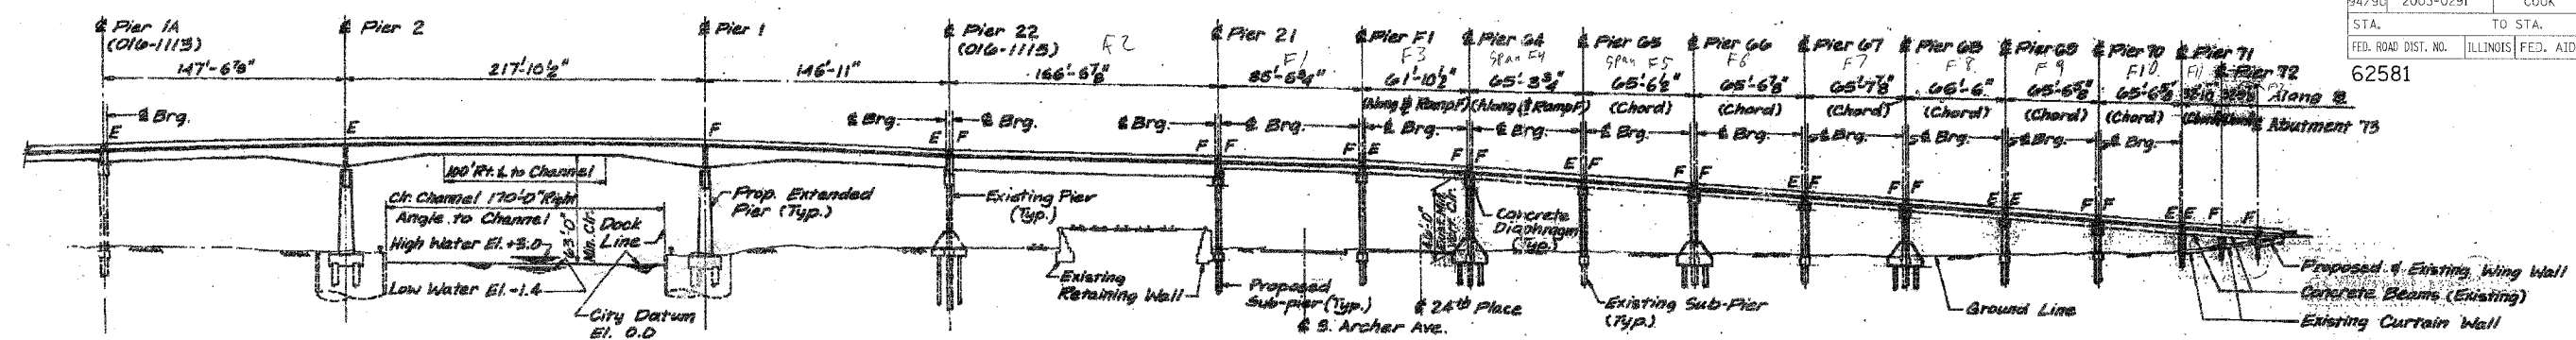 94/90 2003-029I COOK
STA. TO STA.
FED. ROAD DIST. NO. ILLINOIS FED. AID
62581
℄ Pier 1A
(016-1113)
℄ Pier 2
℄ Pier 1
℄ Pier 22
(016-1115)
F2
℄ Pier 21
F1
℄ Pier F1
F3
℄ Pier 64
Span F4
℄ Pier 65
Span F5
℄ Pier 66
F6
℄ Pier 67
F7
℄ Pier 68
F8
℄ Pier 69
F9
℄ Pier 70
F10
℄ Pier 71
F11
℄ Pier 72
147'-6⅞"
217'-10½"
146'-11"
166'-6⅞"
85'-6¾"
61'-10½"
65'-3¾"
65'-6½"
65'-6⅞"
65'-7⅞"
66'-6"
65'-6⅝"
65'-6⅝"
Along ℄
(Along ℄ Ramp F)
(Along ℄ Ramp F)
(Chord)
(Chord)
(Chord)
(Chord)
(Chord)
(Chord)
℄ Abutment 73
℄ Brg.
℄ Brg.
℄ Brg.
℄ Brg.
℄ Brg.
℄ Brg.
℄ Brg.
℄ Brg.
℄ Brg.
℄ Brg.
℄ Brg.
℄ Brg.
℄ Brg.
E
E
F
E F
F F
F E
F F
E F
F F
E F
F F
E E
F F
E E
F
F
100' Rt. ∠ to Channel
Clr. Channel 170'-0" Right
Angle to Channel
High Water El. +3.0
Low Water El. -1.4
63'-0"
Min. Clr.
Dock
Line
City Datum
El. 0.0
Prop. Extended
Pier (Typ.)
Existing Pier
(Typ.)
Existing
Retaining Wall
Proposed
Sub-pier (Typ.)
℄ S. Archer Ave.
℄ 24th Place
Concrete
Diaphragm
(Typ.)
Existing Sub-Pier
(Typ.)
Ground Line
Proposed & Existing Wing Wall
Concrete Beams (Existing)
Existing Curtain Wall